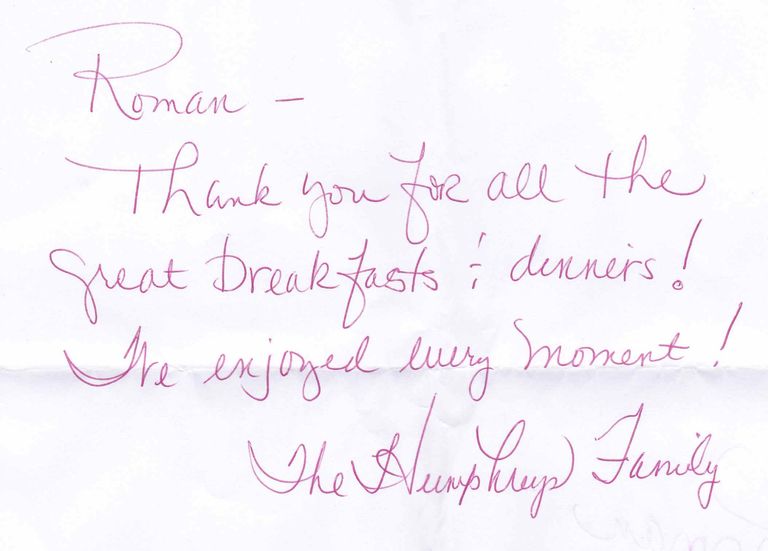 Roman -
Thank you for all the
great breakfasts & dinners!
I've enjoyed every moment!
The Humphreys Family